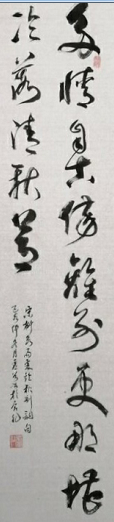 多情自古傷離别更那堪
冷落清秋節
宋柳永雨霖鈴詞句